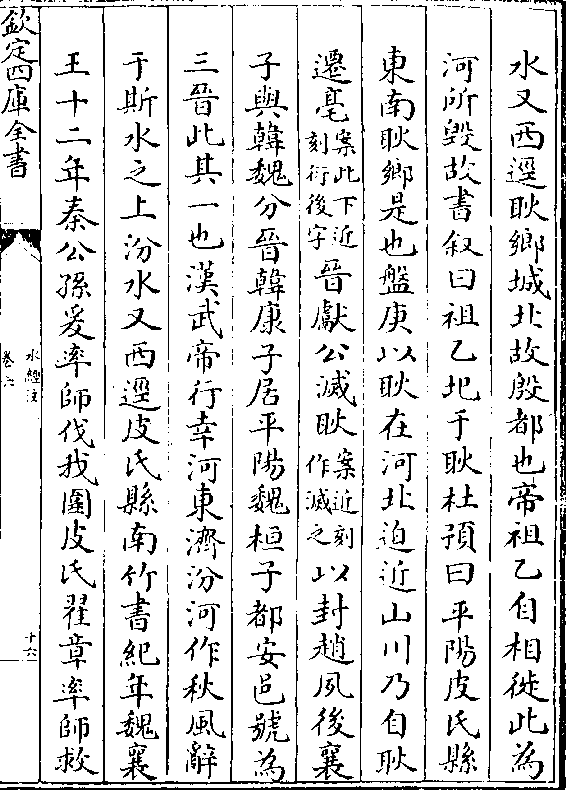 水又西逕耿鄉城北故殷都也帝祖乙自相徙此為
河所毀故書叙曰祖乙圯于耿杜預曰平陽皮氏縣
東南耿鄉是也盤庚以耿在河北迫近山川乃自耿
遷亳案此下近刻衍後字晉獻公滅耿案近刻作滅之以封趙夙後襄
子與韓魏分晉韓康子居平陽魏桓子都安邑號為
三晉此其一也漢武帝行幸河東濟汾河作秋風辭
于斯水之上汾水又西逕皮氏縣南竹書紀年魏襄
王十二年秦公孫爰率師伐我圍皮氏翟章率師救
欽定四庫全書
水經注
卷六
十六